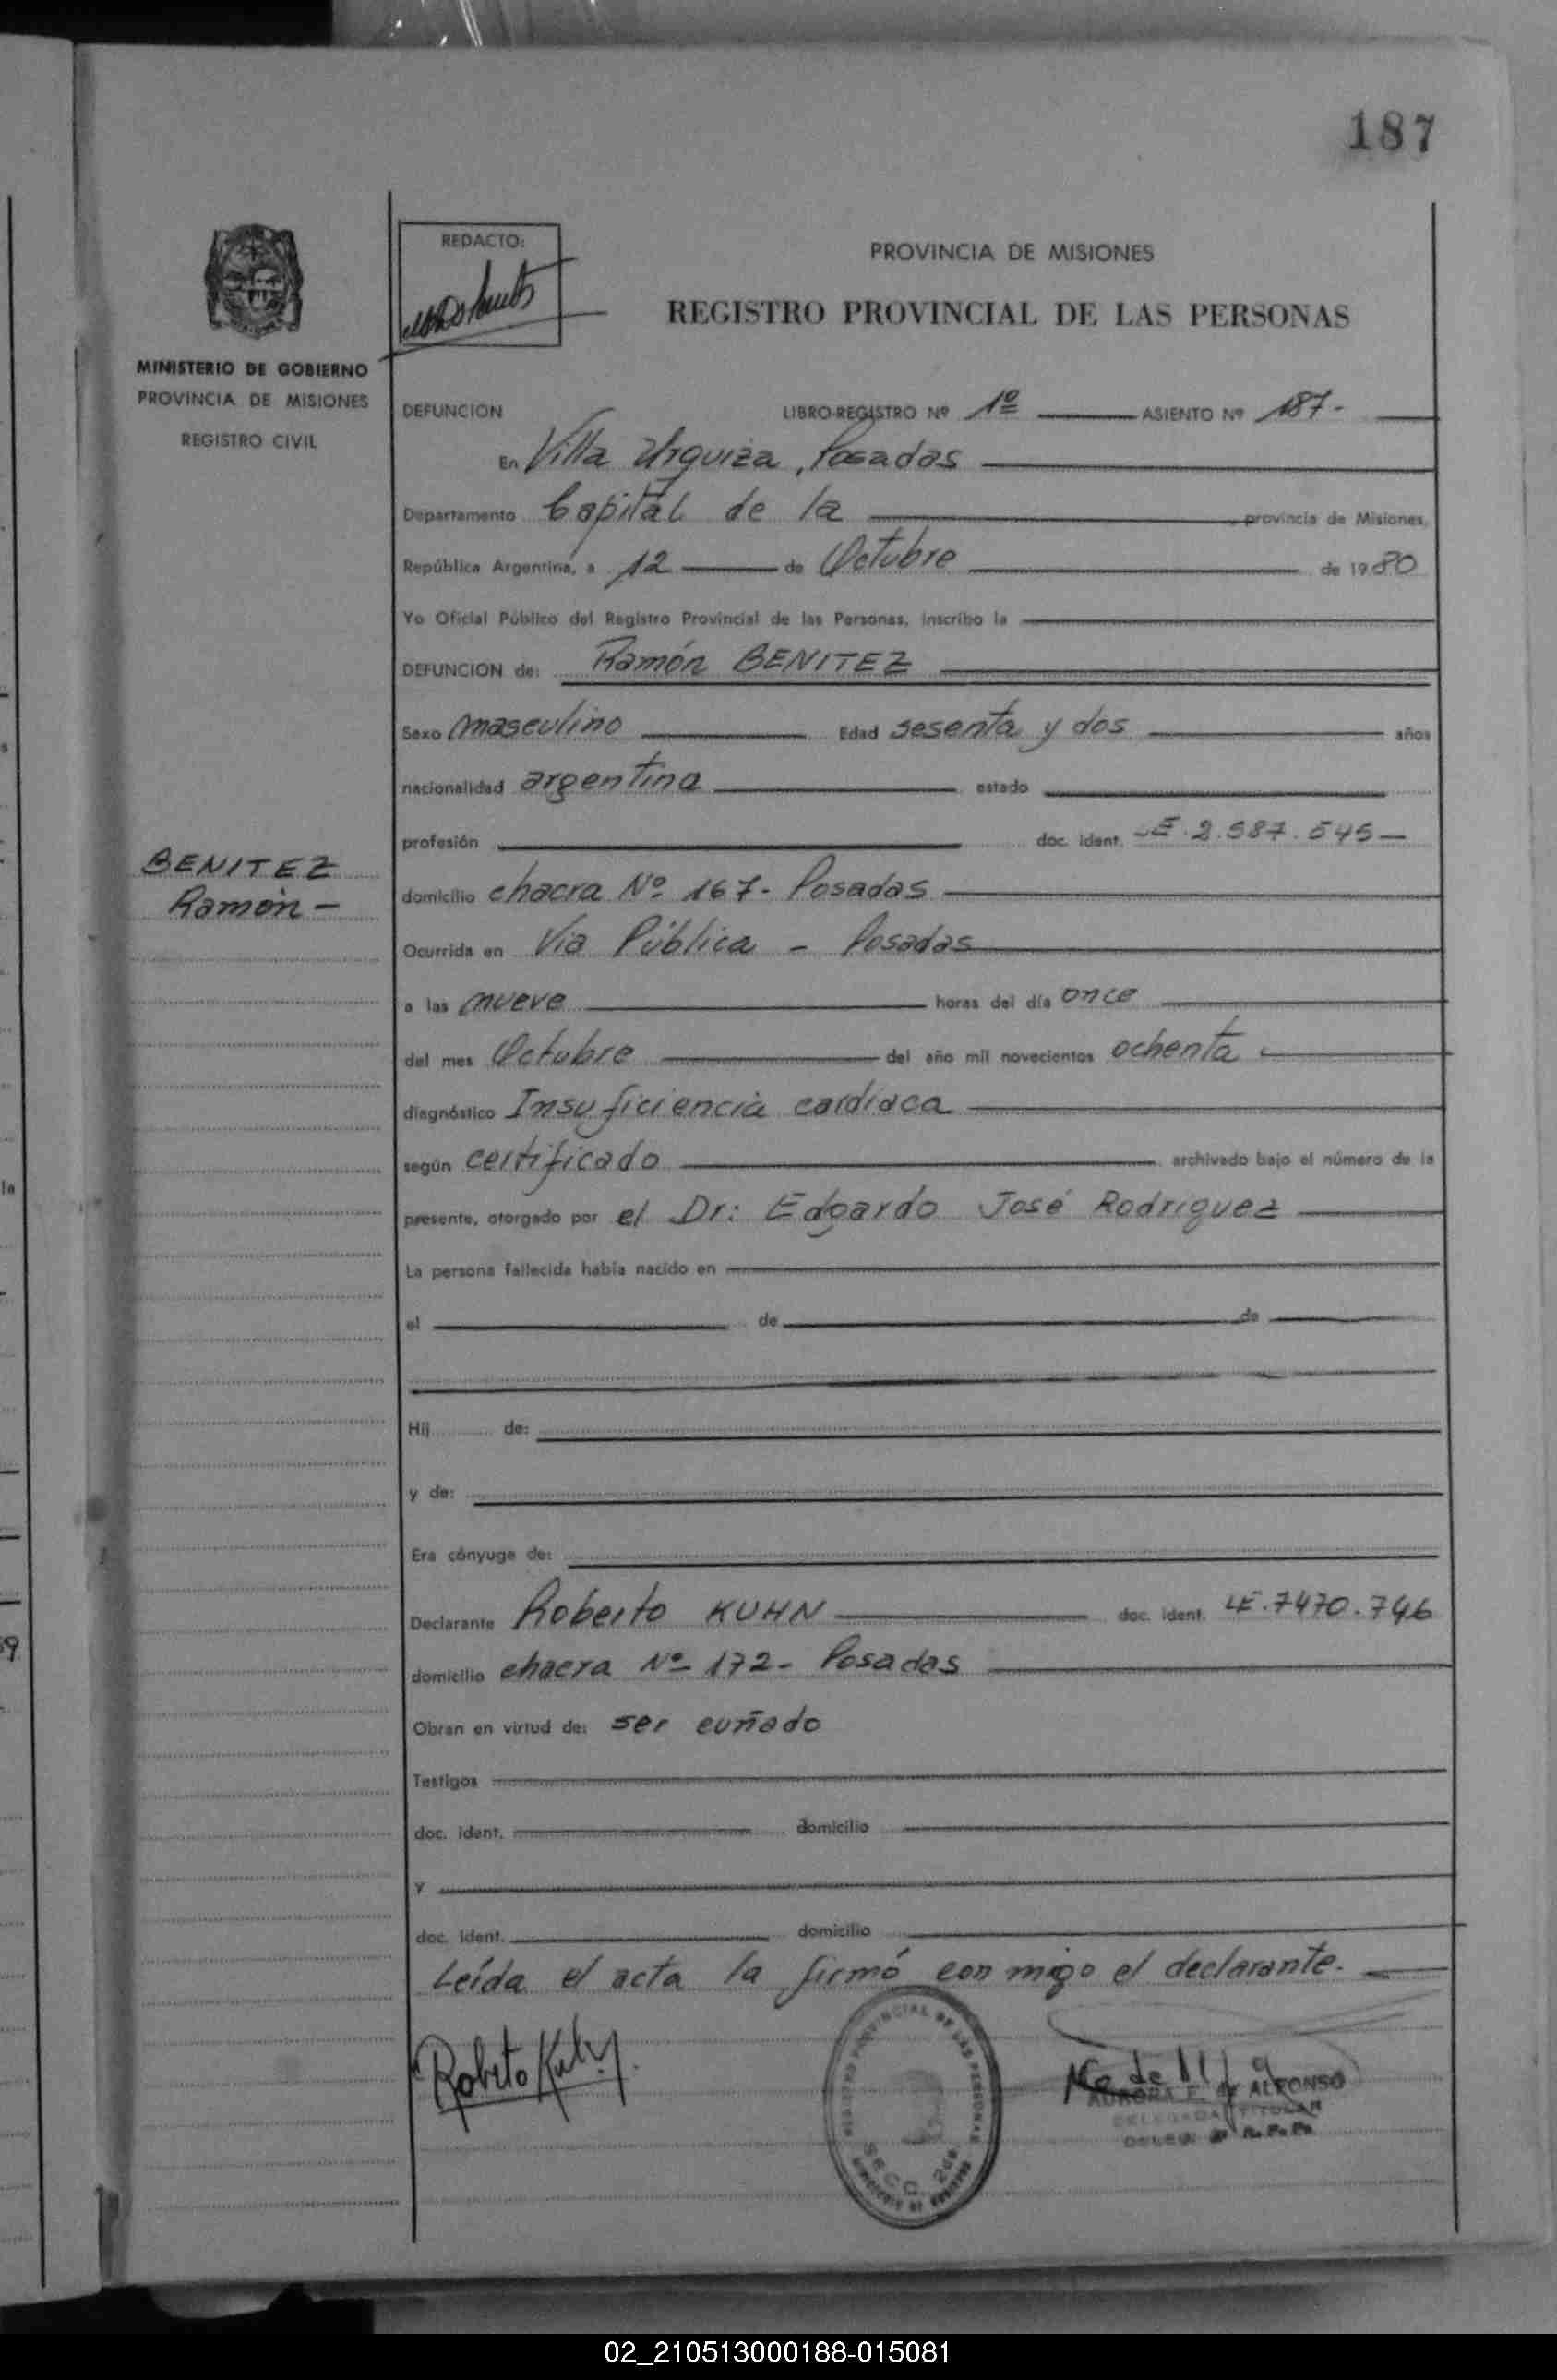 187
REDACTO:
PROVINCIA DE MISIONES
REGISTRO PROVINCIAL DE LAS PERSONAS
MINISTERIO DE GOBIERNO
PROVINCIA DE MISIONES
REGISTRO CIVIL
DEFUNCION LIBRO-REGISTRO Nº 1º ASIENTO Nº 187-
En Villa Urquiza, Posadas
Departamento Capital de la provincia de Misiones,
República Argentina, a 12 de Octubre de 1980
Yo Oficial Público del Registro Provincial de las Personas, inscribo la
DEFUNCION de: Ramón BENITEZ
Sexo masculino Edad sesenta y dos años
nacionalidad argentina estado
profesión doc. ident. LE. 2.587.545-
BENITEZ
Ramón-
domicilio chacra Nº 167- Posadas
Ocurrida en Vía Pública - Posadas
a las nueve horas del día once
del mes Octubre del año mil novecientos ochenta
diagnóstico Insuficiencia cardíaca
según certificado archivado bajo el número de la
presente, otorgado por el Dr: Edgardo José Rodriguez
La persona fallecida había nacido en
el de de
Hij de:
y de:
Era cónyuge de:
Declarante Roberto KUHN doc. ident. LE. 7470.746
domicilio chacra Nº 172- Posadas
Obran en virtud de: ser cuñado
Testigos
doc. ident. domicilio
y
doc. ident. domicilio
Leída el acta la firmó con migo el declarante.
Roberto Kuhn
REGISTRO PROVINCIAL DE LAS PERSONAS
MINISTERIO DE GOBIERNO
AURORA E. de ALFONSO
DELEGADA TITULAR
02_210513000188-015081